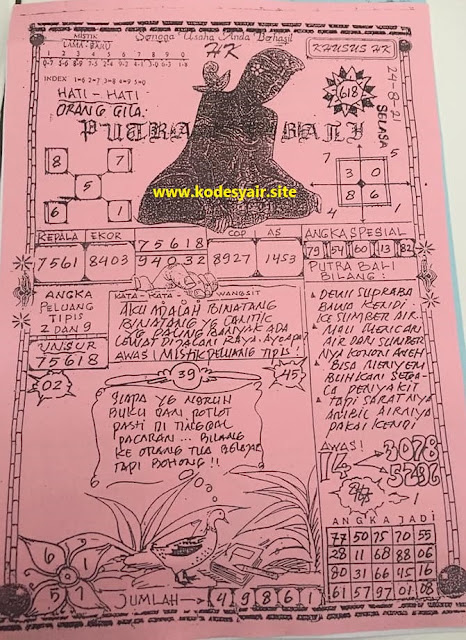 MISTIK
LAMA - BARU
1 2 3 4 5 6 7 8 9 0
Semoga Usaha Anda Berhasil
HK
KHUSUS HK
INDEX 1=6 2=7 3=8 4=9 5=0
HATI - HATI
ORANG GILA.
618
24-8-21
SELASA
PUTRA BALI
8 7
5
6 1
7 5
3 0
8 6
4 1
www.kodesyair.site
KEPALA EKOR
7561 8403
75618
94032
COP AS
8927 1453
ANGKA SPESIAL
79 54 60 13 82
ANGKA
PELUANG
TIPIS
2 DAN 9
UNSUR
75618
02
KATA - KATA WANGSIT
AKU ADALAH BINATANG
BINATANG YG CANTIK
DI KAMPUNG BANYAK ADA
LEWAT DI JALAN RAYA.
AWAS! MISTIK PELUANG TIPIS!
PUTRA BALI
BILANG:
DEWI SUPRABA
BAWA KENDI
KE SUMBER AIR.
MAU MENCARI
AIR DARI SUMBER
NYA KONON ANEH
BISA MENYEM
BUHKAN SEGA-
LA PENYAKIT
TAPI SARATNYA
AMBIL AIRNYA
PAKAI KENDI
39
45
SIAPA YG NGRUH
BUKU DAN POTLOT
PASTI DI TINGGAL
PACARAN... BILANG
KE ORANG TUA BELAJAR
TAPI BOHONG!!
AWAS!
14
3078
5296
ANGKA JADI
77 50 75 70 55
28 11 68 88 06
80 31 66 45 16
61 57 97 01 08
6 1
5 7
JUMLAH → 4 9 8 6 1